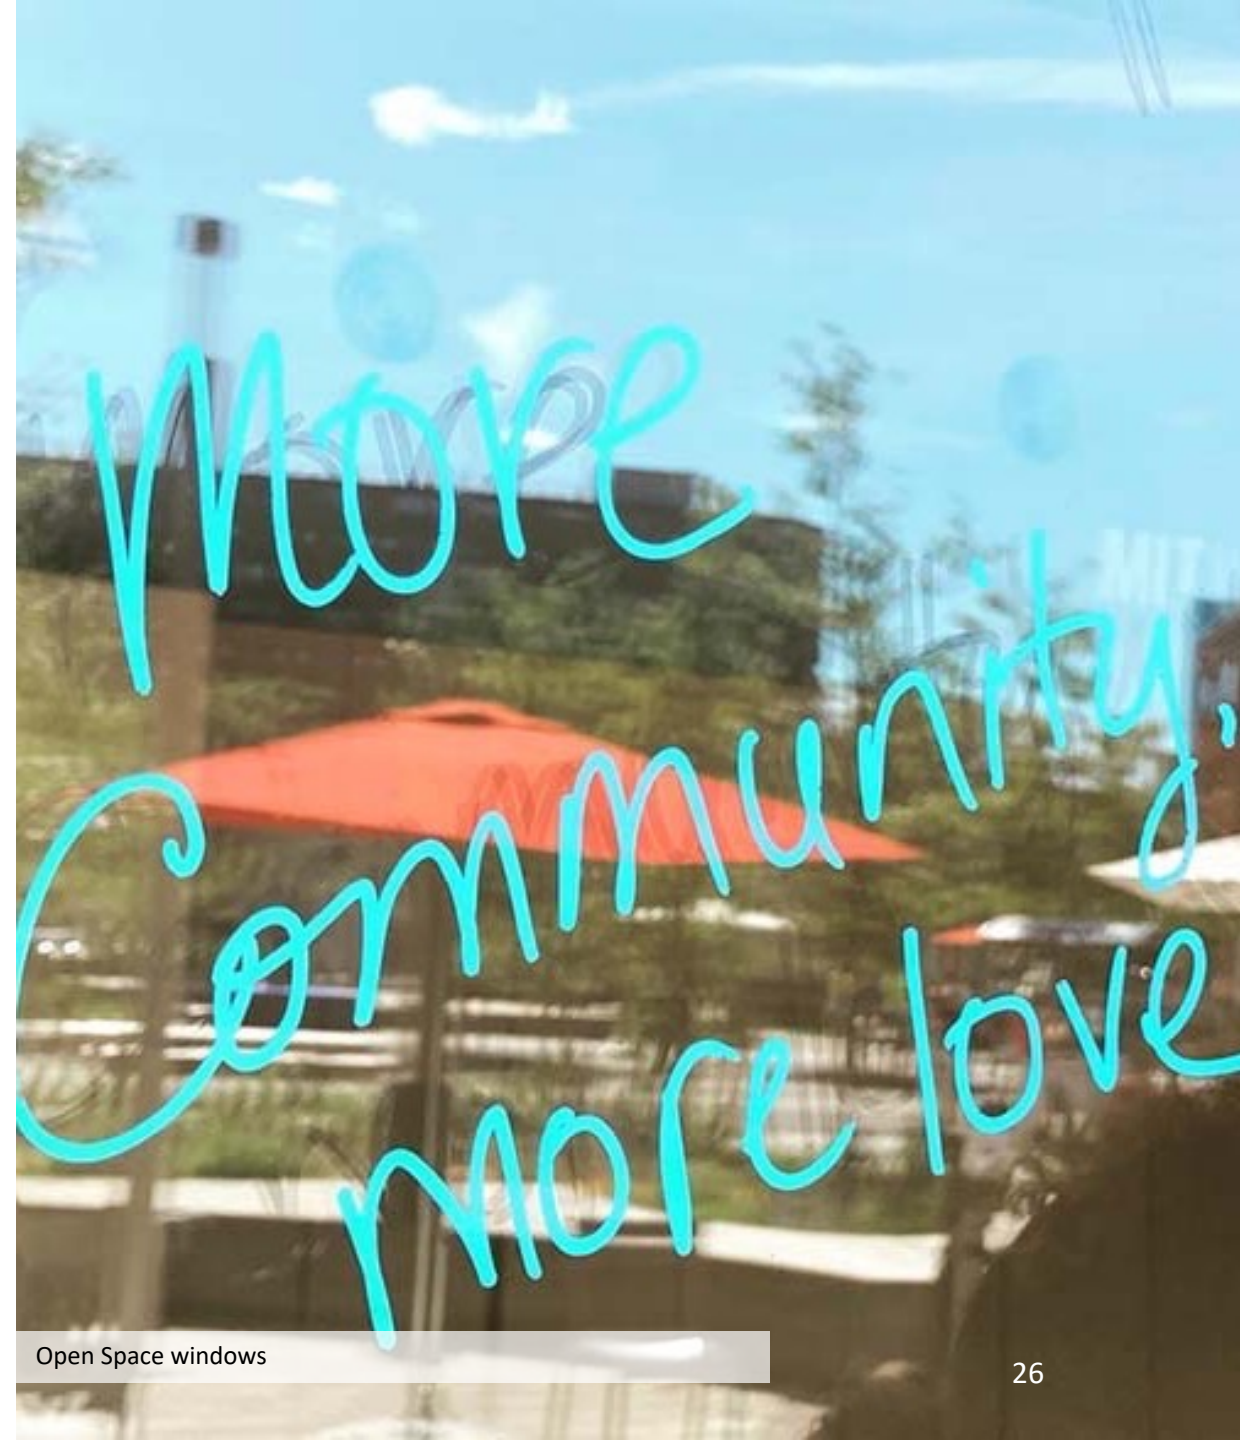 MIT
More
Community,
more love
Open Space windows
26